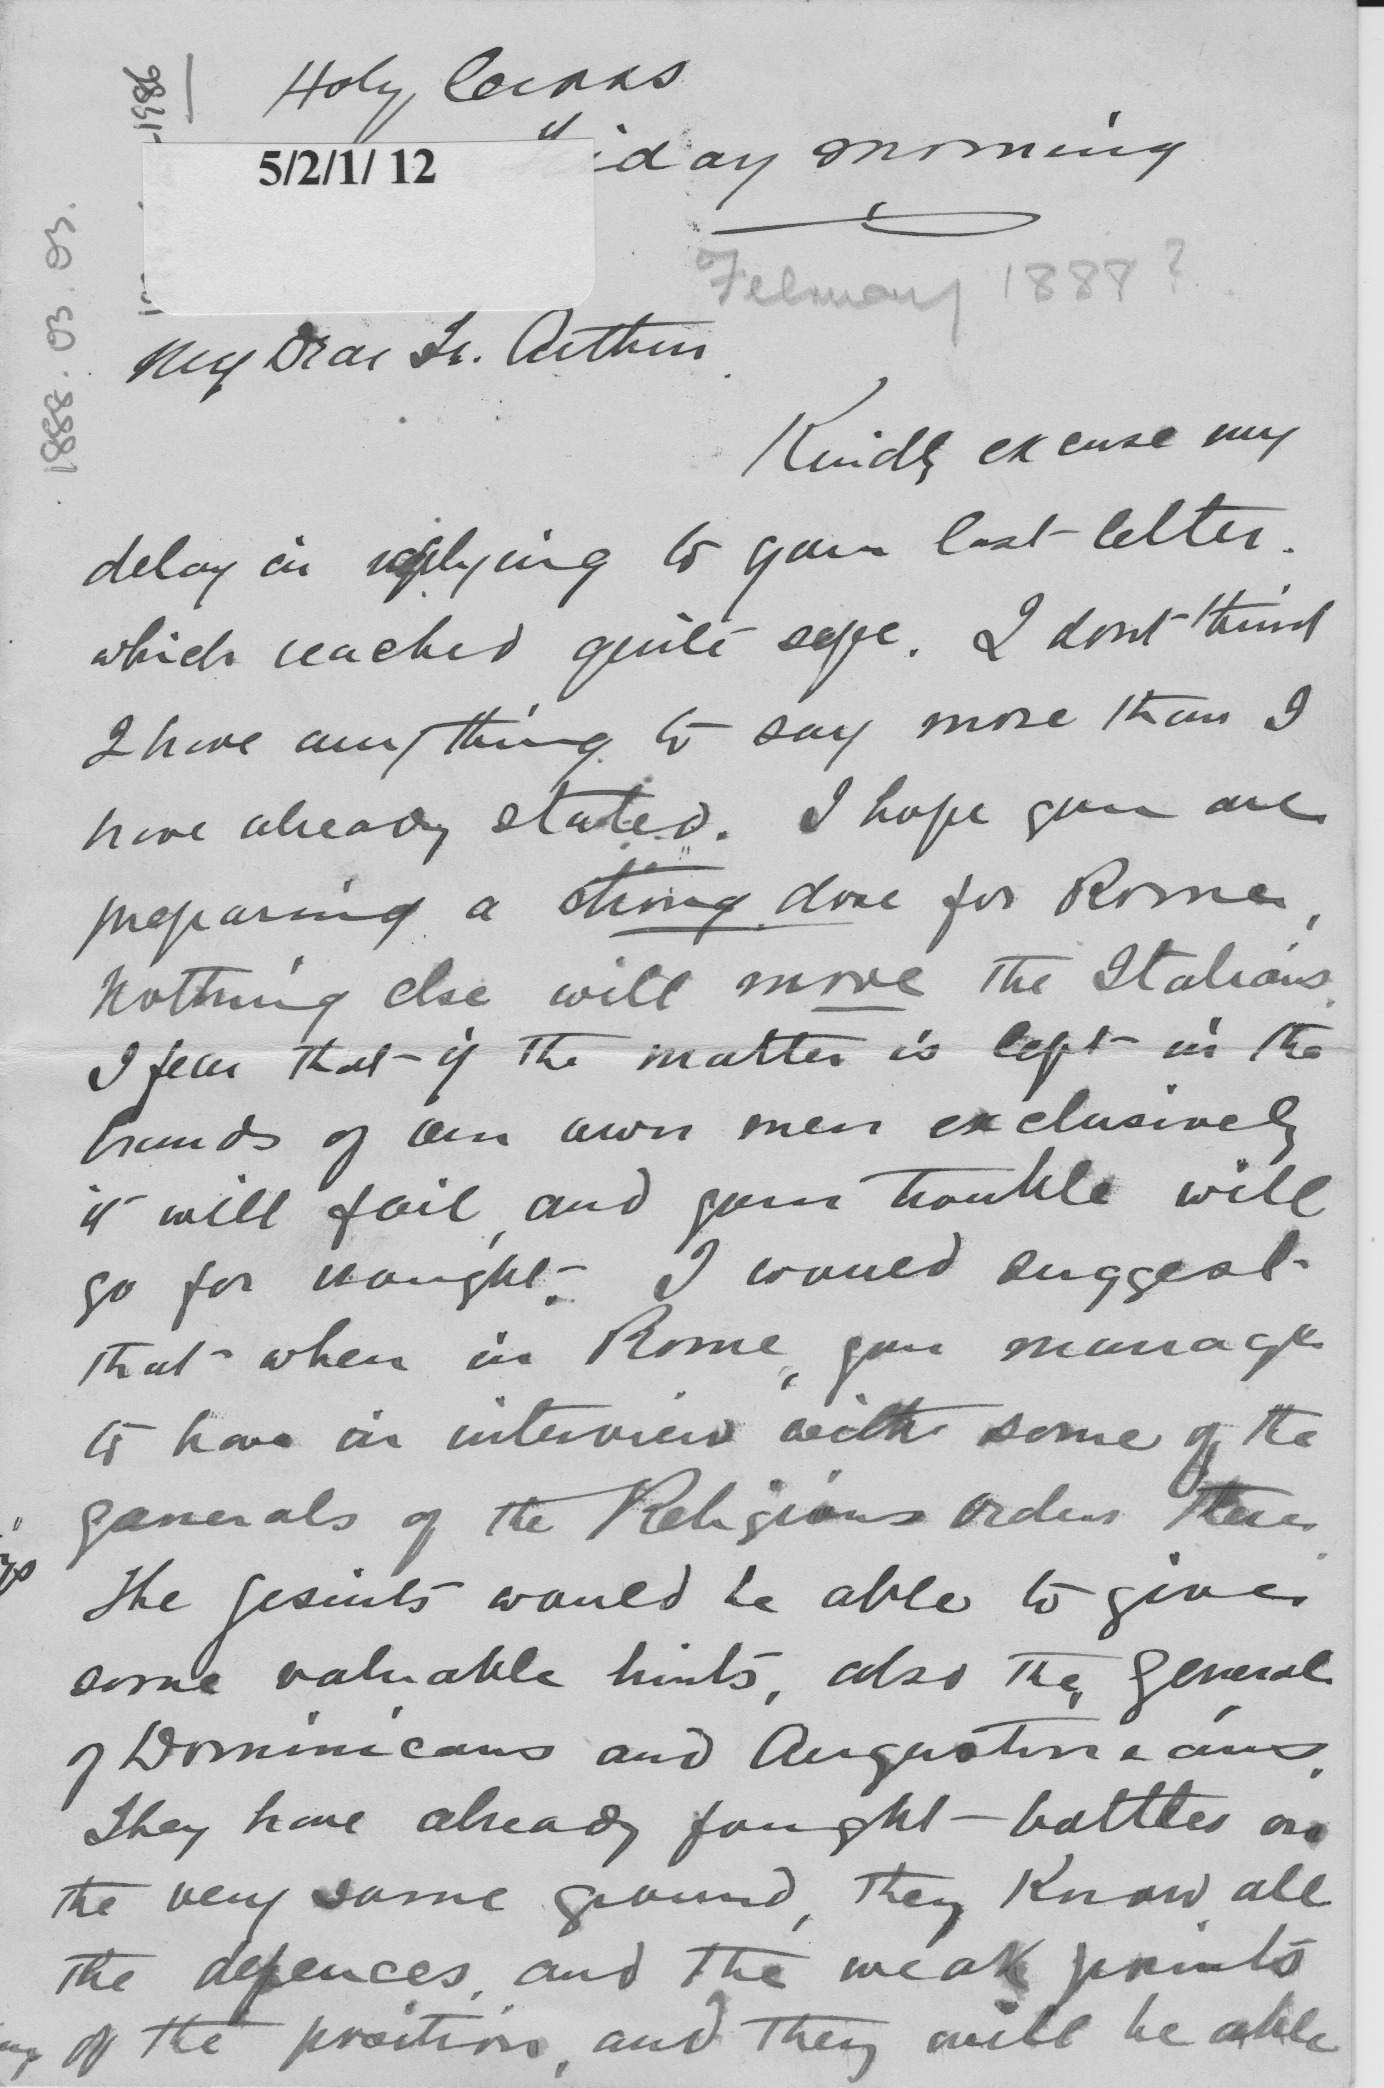 Holy Cross
5/2/1/ 12
iday morning
February 1888?
1888. 03. 03.
My Dear Fr. Arthur
Kindly excuse my
delay in replying to your last letter.
which reached quite safe. I dont think
I have anything to say more than I
have already stated. I hope you are
preparing a strong dose for Rome,
Nothing else will move the Italians.
I fear that if the matter is left in the
hands of our own men exclusively
it will fail, and your trouble will
go for naught. I would suggest
that when in Rome, you manage
to have an interview with some of the
generals of the Religious orders there.
The Jesuits would be able to give
some valuable hints, also the General
of Dominicans and Augustineans.
They have already fought battles on
the very same ground, they know all
the defences, and the weak points
of the position, and they will be able